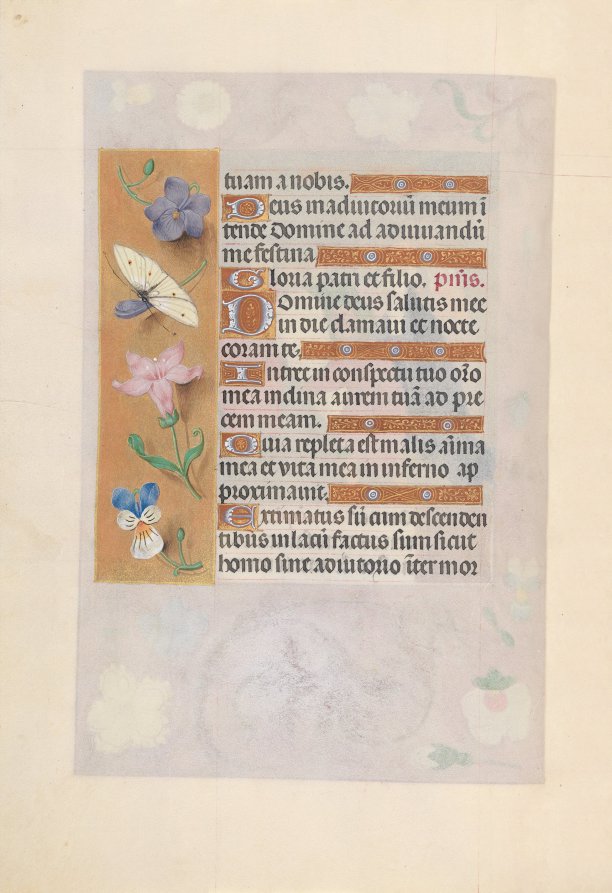 tuam a nobis.
Deus in adiutoriū meum ī
tende Domine ad adiuuandū
me festina.
Gloria patri et filio. p̄nīs.
Domine deus salutis mee
in die clamaui et nocte
coram te.
Intret in conspectu tuo orō
mea inclina aurem tuā ad pre
cem meam.
Quia repleta est malis aīma
mea et vita mea in inferno ap
propinauit.
Extimatus sū cum descenden
tibus in lacū factus sum sicut
homo sine adiutorio īter mor